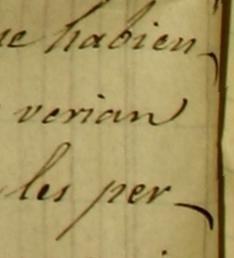 ue habien-
verian
les per-